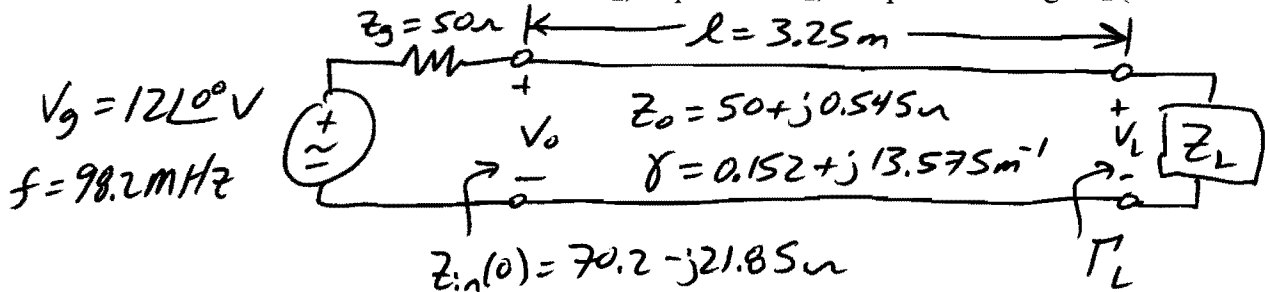 Zg = 50Ω
l = 3.25m
Vg = 12∠0° V
f = 98.2 MHz
+
~
-
+
V0
-
Z0 = 50+j0.545Ω
γ = 0.152+j13.575m⁻¹
+
VL
-
ZL
Zin(0) = 70.2-j21.85Ω
ΓL